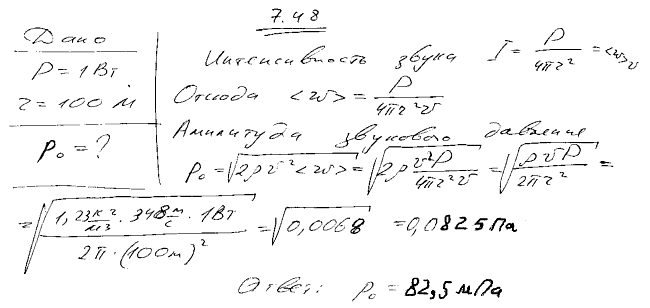 7.48
Дано
P = 1 Вт
r = 100 м
p₀ = ?
Интенсивность звука I = P / 4πr² = <w>v
Отсюда <w> = P / 4πr²v
Амплитуда звукового давления
p₀ = √(2ρv²<w>) = √(2ρ v²P / 4πr²v) = √(ρvP / 2πr²) =
= √(1,23 кг/м3 · 348 м/с · 1Вт / 2π·(100м)²) = √0,0068 = 0,0825 Па
Ответ: p₀ = 82,5 мПа